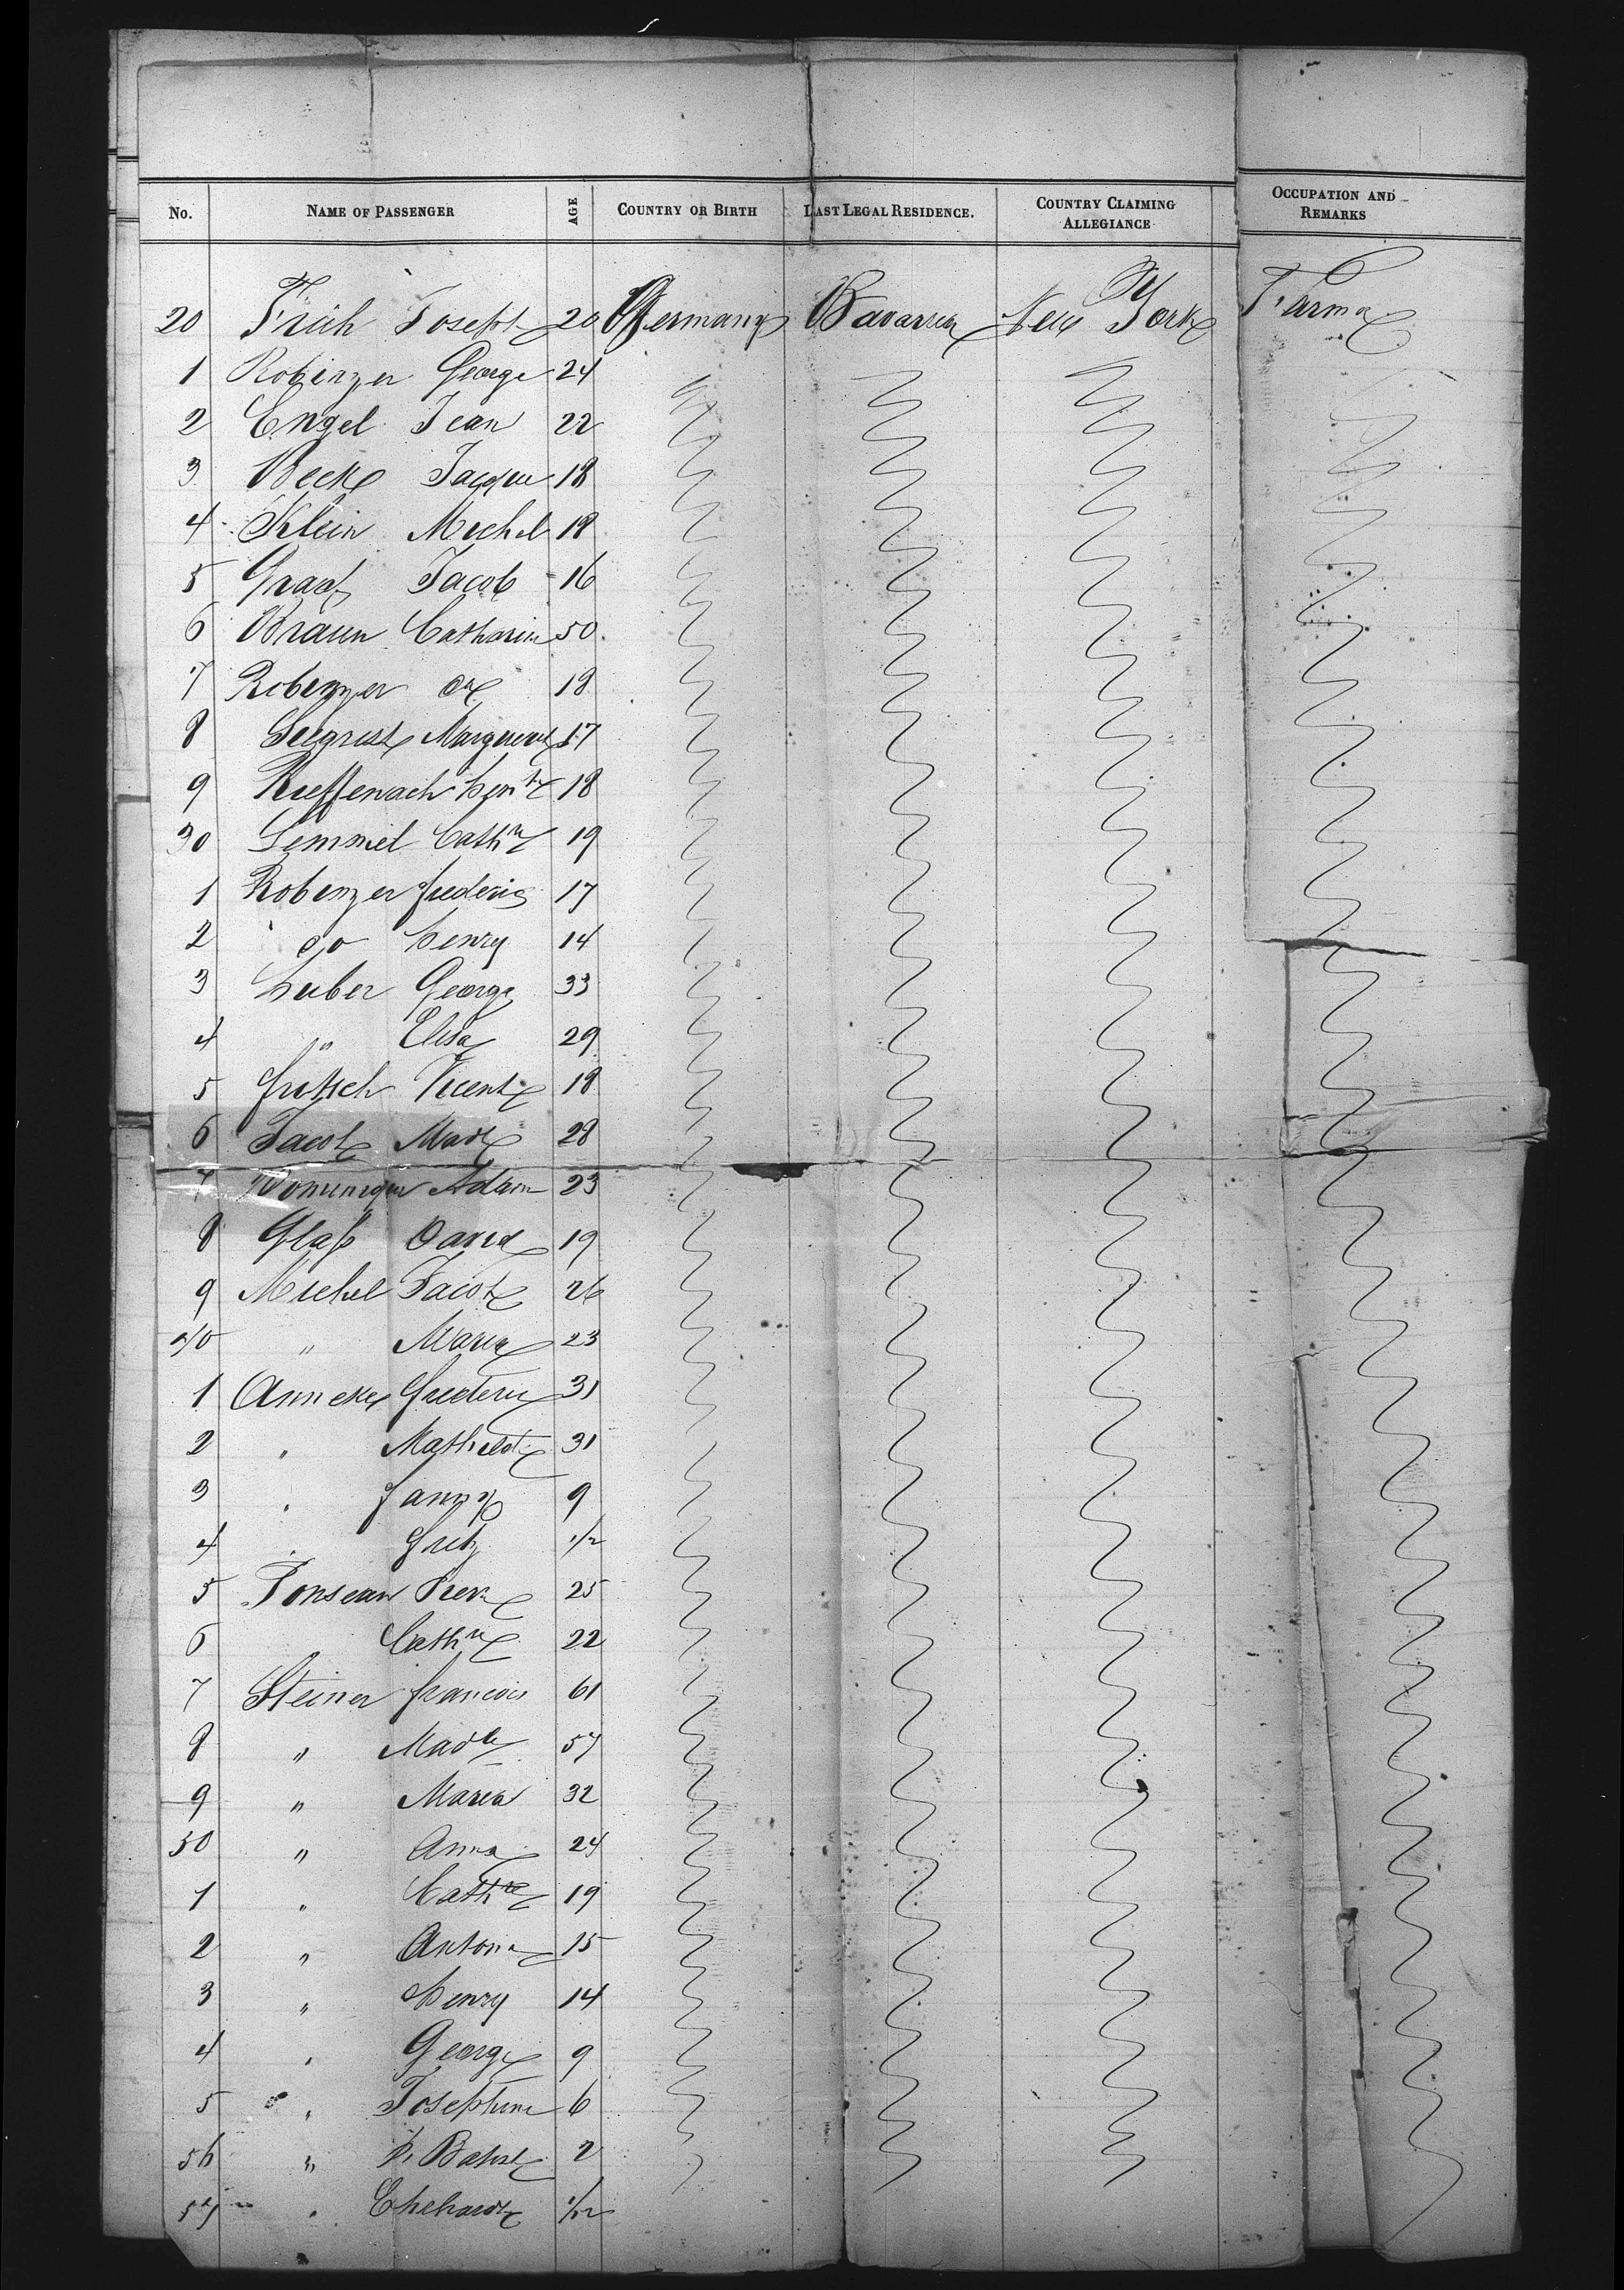 No. NAME OF PASSENGER AGE COUNTRY OR BIRTH LAST LEGAL RESIDENCE. COUNTRY CLAIMING ALLEGIANCE OCCUPATION AND REMARKS
20 Früh Joseph 20 Germany Bavaria New York Farmer
1 Robinzer George 24
2 Engel Jean 22
3 Beck Jacque 18
4 Klein Michel 18
5 Graf Jacob 16
6 Braun Catharin 50
7 Robenzer 18
8 Seegrist Marguerit 17
9 Rueffenach 18
30 Lemmel Cathne 19
1 Robenzer frederic 17
2 do henry 14
3 huber George 33
4 " Elisa 29
5 fritsch Vicent 18
6 Jacob 28
7 Dominique Adam 23
8 Glass David 19
9 Michel Jacob 26
40 " Maria 23
1 Anneke frederic 31
2 " Mathild 31
3 " fanny 9
4 " fritz 1/2
5 25
6 " Cathne 22
7 Steiner francois 61
8 " Madle 57
9 " Maria 32
50 " Anna 24
1 " Cathne 19
2 " Antoin 15
3 " henry 14
4 " George 9
5 " Josephine 6
56 " 2
57 " 1/12